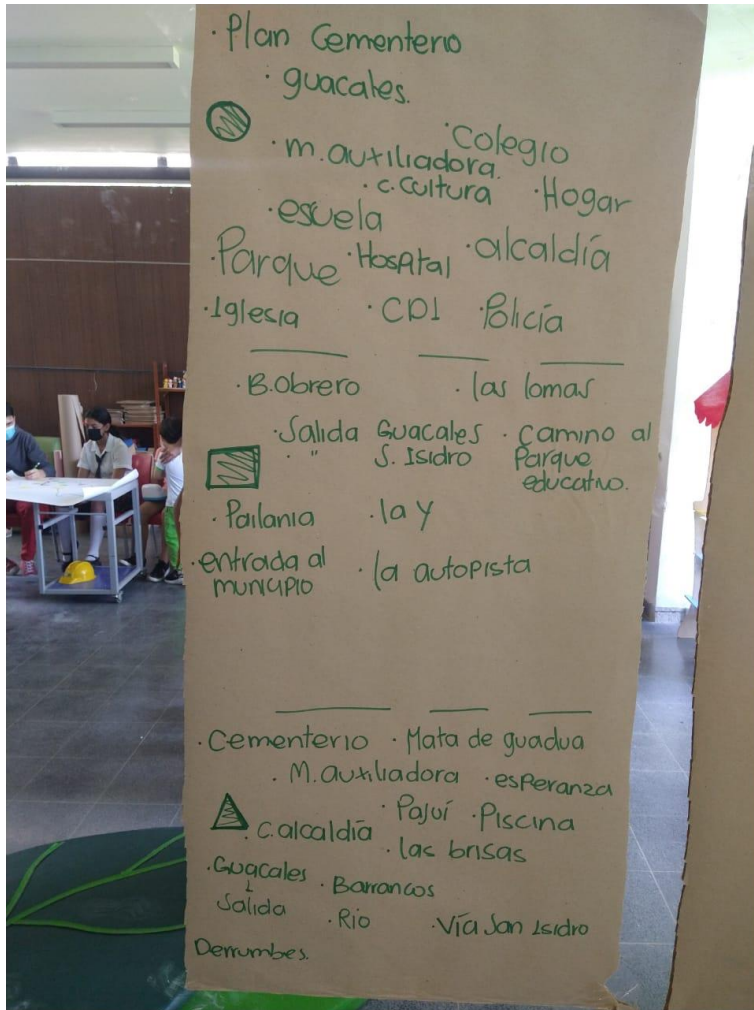 · Plan Cementerio
· guacales.
· colegio
· m. auxiliadora.
· c. cultura · Hogar
· escuela
· Parque · Hospital · alcaldía
· Iglesia · CDI · Policía
· B. Obrero · las lomas
· Salida Guacales · camino al
· " S. Isidro Parque
educativo.
· Pailania · la y
· entrada al · la autopista
municipio
· Cementerio · Mata de guadua
· M. auxiliadora · esperanza
· Pajuí · Piscina
· c. alcaldía · las brisas
· Guacales · Barrancos
Salida · Rio · Vía San Isidro
Derrumbes.